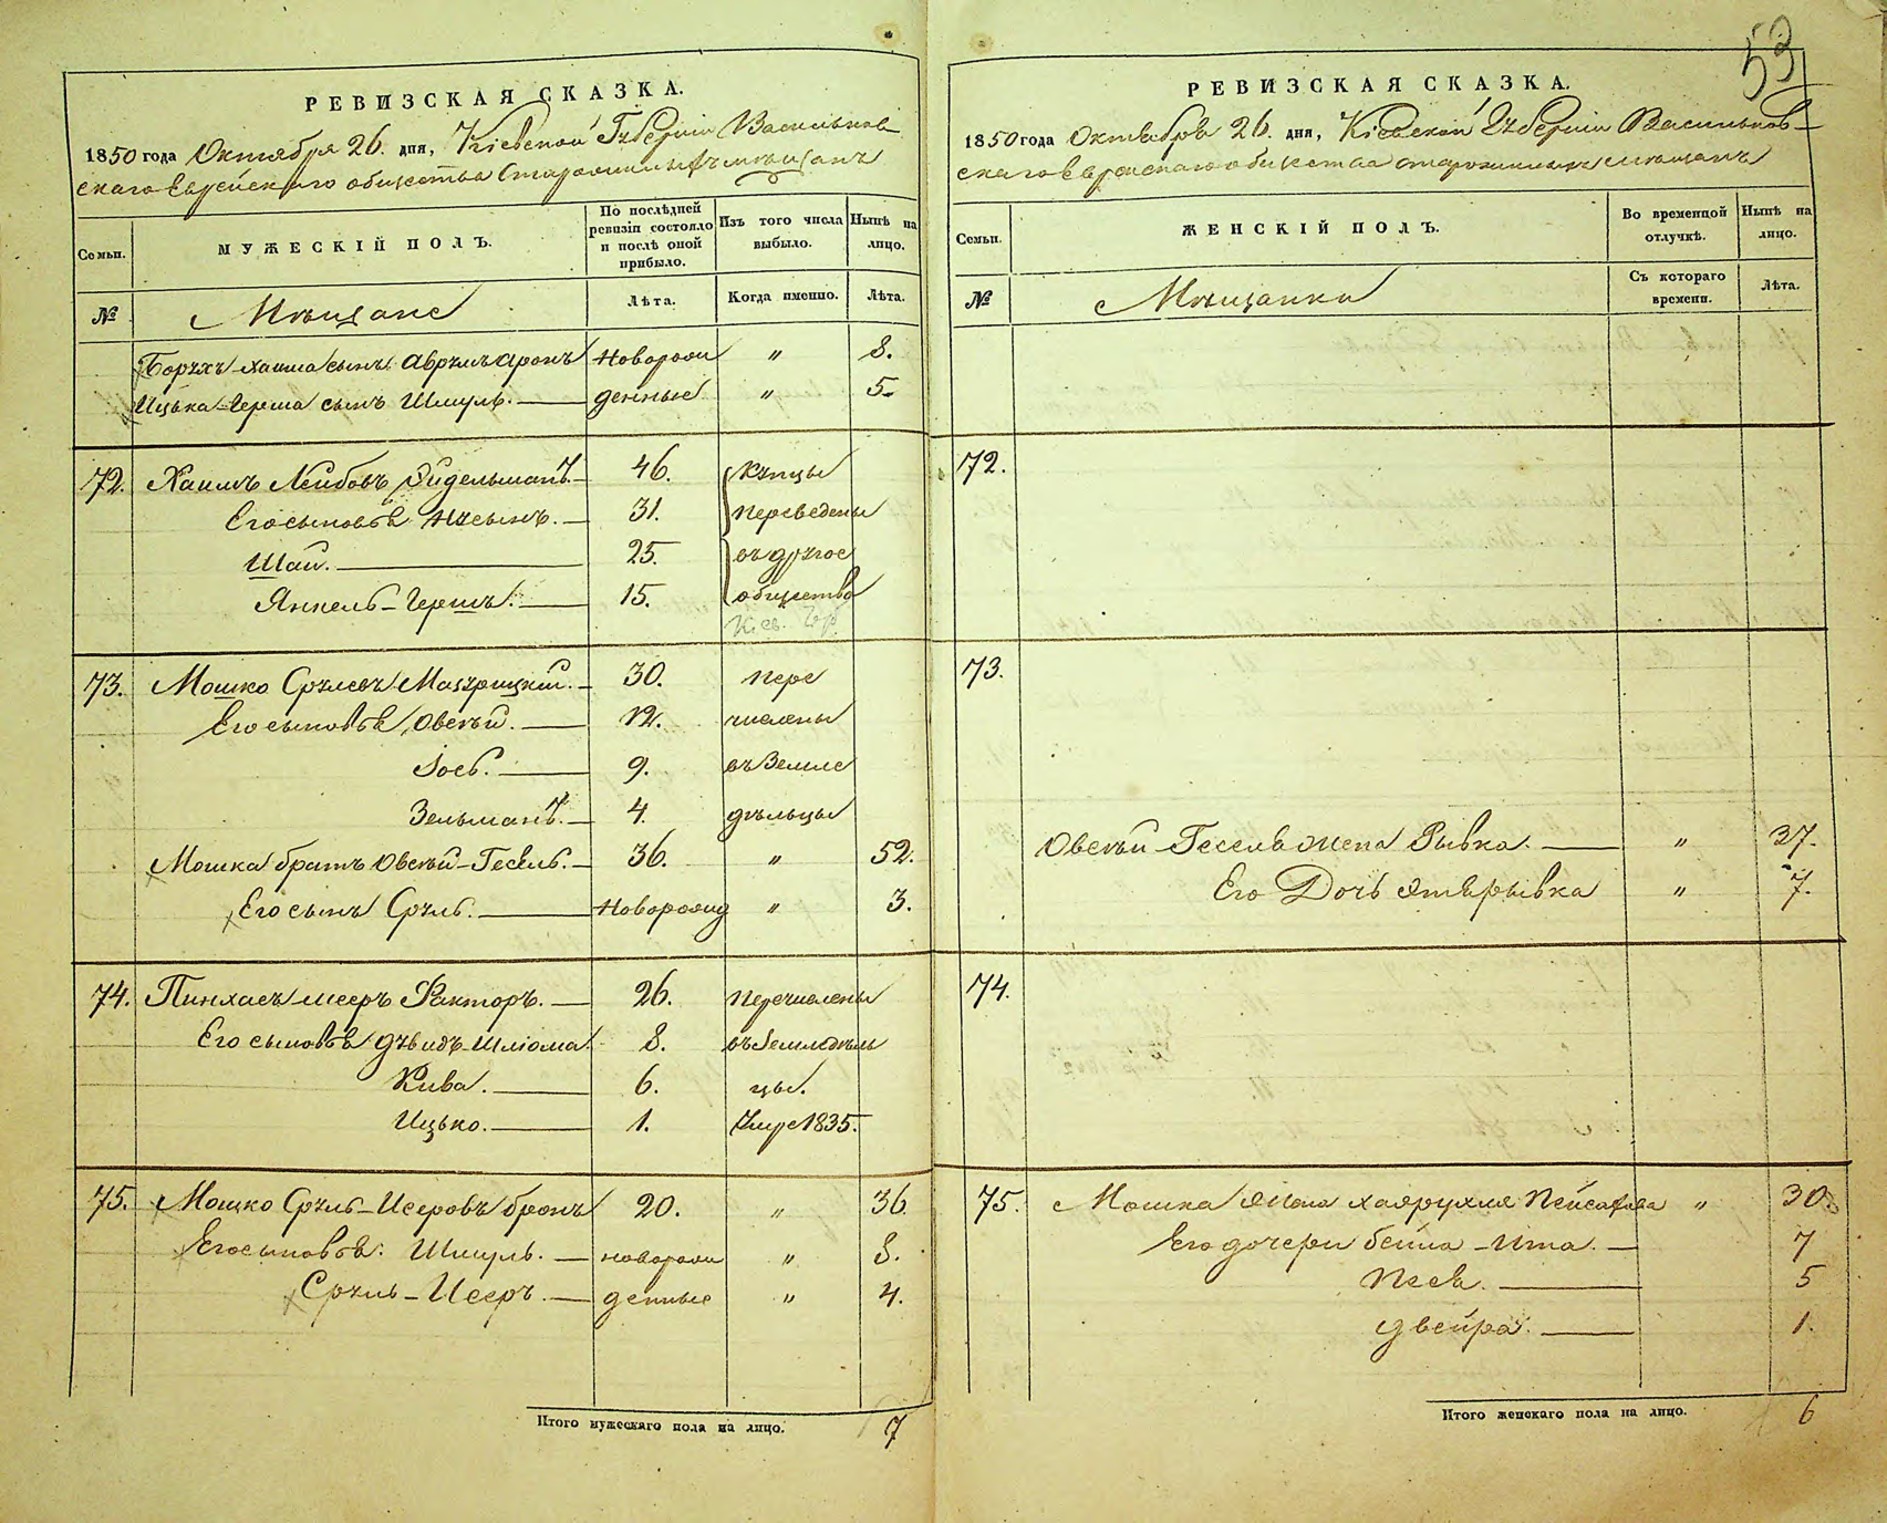 53
РЕВИЗСКАЯ СКАЗКА.
1850 года Октября 26. дня, Кіевской Губерніи Васильков-
скаго Еврейскаго общества Старожилыхъ мѣщанъ
Семьи.
МУЖЕСКІЙ ПОЛЪ.
По послѣдней ревизіи состояло и послѣ оной прибыло.
Изъ того числа выбыло.
Нынѣ на лицо.
№
Мѣщане
Лѣта.
Когда именно.
Лѣта.
Борухъ-Хаима сынъ Аврумъ Аронъ новорож " 8.
Ицька-Герша сынъ Шмуль. денные " 5.
72. Хаимъ Лейбовъ Эйдельманъ. 46. Купцы
Его сыновья Нусынъ. 31. переведены
Шаи. 25. въ другое
Янкель-Гершъ. 15. общество
Кіев. Губ.
73. Мошко Срулевъ Мазурицкій. 30. пере
Его сыновья, Овсѣй. 12. числены
Іось. 9. въ Земле
Зельманъ. 4. дѣльцы
Мошка братъ Овсѣй-Гесель. 36. " 52.
Его сынъ Сруль. новорожд " 3.
74. Пинхасъ-Мееръ Факторъ. 26. перечислены
Его сыновья Дувидъ-Шліома. 8. въ Земледѣль
Кива. 6. цы.
Ицько. 1. Умре 1835.
75. Мошко Сруль-Исеровъ Бронъ 20. " 36.
Его сыновья. Шмуль. новорож " 8.
Сруль-Исеръ. денные " 4.
Итого мужескаго пола на лицо. 7
РЕВИЗСКАЯ СКАЗКА.
1850 года Октября 26. дня, Кіевской Губерніи Васильков-
скаго Еврейскаго общества старожилыхъ мѣщанъ
Семьи.
ЖЕНСКІЙ ПОЛЪ.
Во временной отлучкѣ.
Нынѣ на лицо.
№
Мѣщанки
Съ котораго времени.
Лѣта.
72.
73.
Овсѣй-Геселя жена Рывка. " 37.
Его Дочь Этярывка " 7.
74.
75. Мошка жена Хаярухля Пейсахова " 30
Его дочери Бейла-Ита. 7
Песя. 5
Двейра. 1.
Итого женскаго пола на лицо. 6